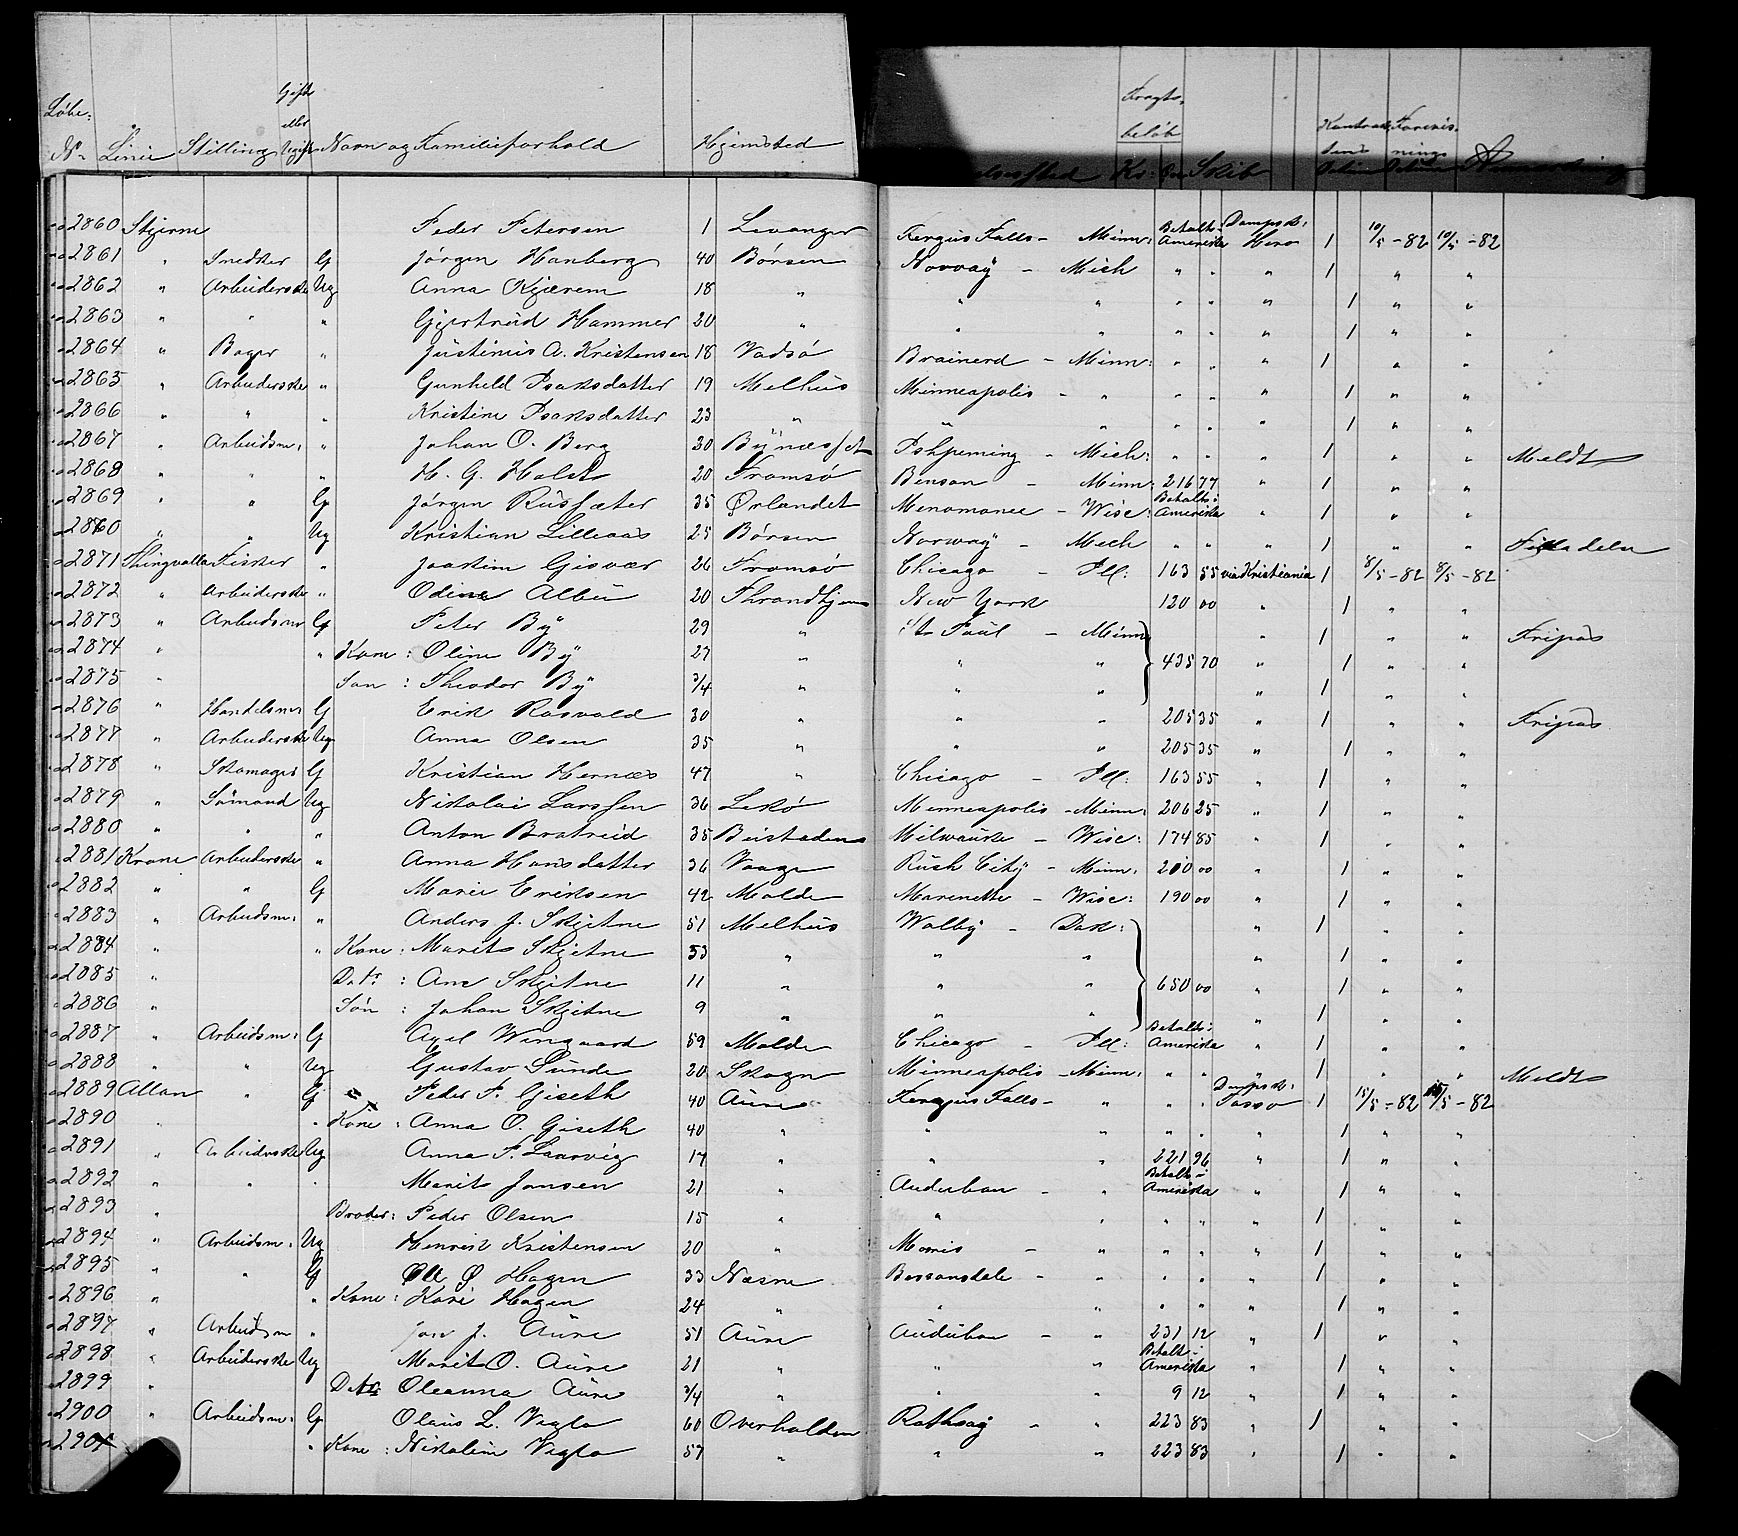 Løbe: Gift Fragts- Kontrak- Forevis-
eller beløb dens nings
No Linie Stilling Ugift Navn og Familieforhold Hjemsted Kr: Øre Skib Datum Datum Anmærkning
2860 Stjerne Peder Petersen 1 Levanger Fergus Falls - Minn: Betalt i Amerika Dampsk: Hero 1 10/5 - 82 10/5 - 82
2861 " Snedker G Jørgen Hanberg 40 Børsen Norway - Mich " " " 1 " "
2862 " Arbeiderske Ug Anna Kjærem 18 " " " " " " 1 " "
2863 " " " Gjertrud Hammer 20 " " " " " " 1 " "
2864 " Bager " Justinus A. Kristensen 18 Vadsø Brainerd - Minn: " " " 1 " "
2865 " Arbeiderske " Gunhild Isaksdatter 19 Melhus Minneapolis - " " " " 1 " "
2866 " " " Kristine Isaksdatter 23 " " " " " " 1 " "
2867 " Arbeidsm: " Johan O. Berg 30 Bynæsset Ishpeming - Mich: " " " 1 " " Meldt
2868 " " " H. G. Holst 20 Tromsø Benson - Minn: 216 77 " 1 " "
2869 " " G Jørgen Russæter 35 Ørlandet Menomonee - Wisc: Betalt i Amerika " 1 " "
2870 " " Ug Kristian Lilleaas 25 Børsen Norway - Mich " " " 1 " "
2871 Thingvalla Fisker " Joakim Gisvær 26 Tromsø Chicago - Ill: 163 55 via Kristiania 1 8/5 - 82 8/5 - 82
2872 " Arbeiderske " Odine Albu 20 Throndhjem New York 120 00 " 1 " "
2873 " Arbeidsm G Peter By 29 " St Paul - Minn " 1 " " Fripas
2874 " " Kone: Oline By 27 " " " 435 70 " 1 " "
2875 " Søn: Theodor By 3/4 " " " " 1 " "
2876 " Handelsm G Erik Rosvold 30 " " " 205 35 " 1 " " Fripas
2877 " Arbeiderske Ug Anna Olsen 35 " " " 205 35 " 1 " "
2878 " Skomager G Kristian Hernæs 47 " Chicago - Ill: 163 55 " 1 " "
2879 " Sømand Ug Nikolai Larssen 36 Leksø Minneapolis - Minn: 206 25 " 1 " "
2880 " " " Anton Bratreid 35 Beistaden Milwaukee - Wisc: 174 85 " 1 " "
2881 Krone Arbeiderske " Anna Hansdatter 36 Vaage Rush City - Minn: 200 00 " 1 " "
2882 " " G Marie Eriksen 42 Molde Marenette - Wisc: 190 00 " 1 " "
2883 " Arbeidsm: " Anders J. Skjetne 51 Melhus Wolby - Dak: " 1 " "
2884 " " Kone: Marit Skjetne 53 " " " " 1 " "
2885 " Datr: Ane Skjetne 11 " " " 650 00 1 " "
2886 " Søn: Johan Skjetne 9 " " " " 1 " "
2887 " Arbeidsm: G Axel Wingaard 59 Molde Chicago - Ill: Betalt i Amerika " 1 " "
2888 " " Ug Gustav Sunde 20 Skogn Minneapolis - Minn: " " " 1 " " Meldt
2889 Allan " G Peder P. Giseth 40 Aure Fergus Falls - " " " Dampsk: Tasso 1 15/5 - 82 15/5 - 82
2890 " " Kone: Anna O. Giseth 40 " " " " " " 1 " "
2891 " Arbeiderske Ug Anna P. Laurvig 17 " " " 221 96 " 1 " "
2892 " " " Marit Jonsen 21 " Audubon - " Betalt i Amerika " 1 " "
2893 " Broder: Peder Olsen 15 " " " " " " 1 " "
2894 " Arbeidsm. Ug Henrik Kristensen 20 " Morris - " " " " 1 " "
2895 " " G Ole Ø Hagen 33 Næsne Bossansdale - " " " " 1 " "
2896 " " Kone: Kari Hagen 24 " " " " " " 1 " "
2897 " Arbeidsm " Jon J. Aure 51 Aure Audubon - " 231 12 " 1 " "
2898 " Arbeiderske Ug Marit O. Aure 21 " " " Betalt i Amerika " 1 " "
2899 " Oleanna Aure 3/4 " " " 9 12 " 1 " "
2900 " Arbeidsm: G Olaus L. Viglo 60 Overhalden Rothsay - " 223 83 " 1 " "
2901 " Kone: Nikoline Viglo 57 " " " 223 83 " 1 " "